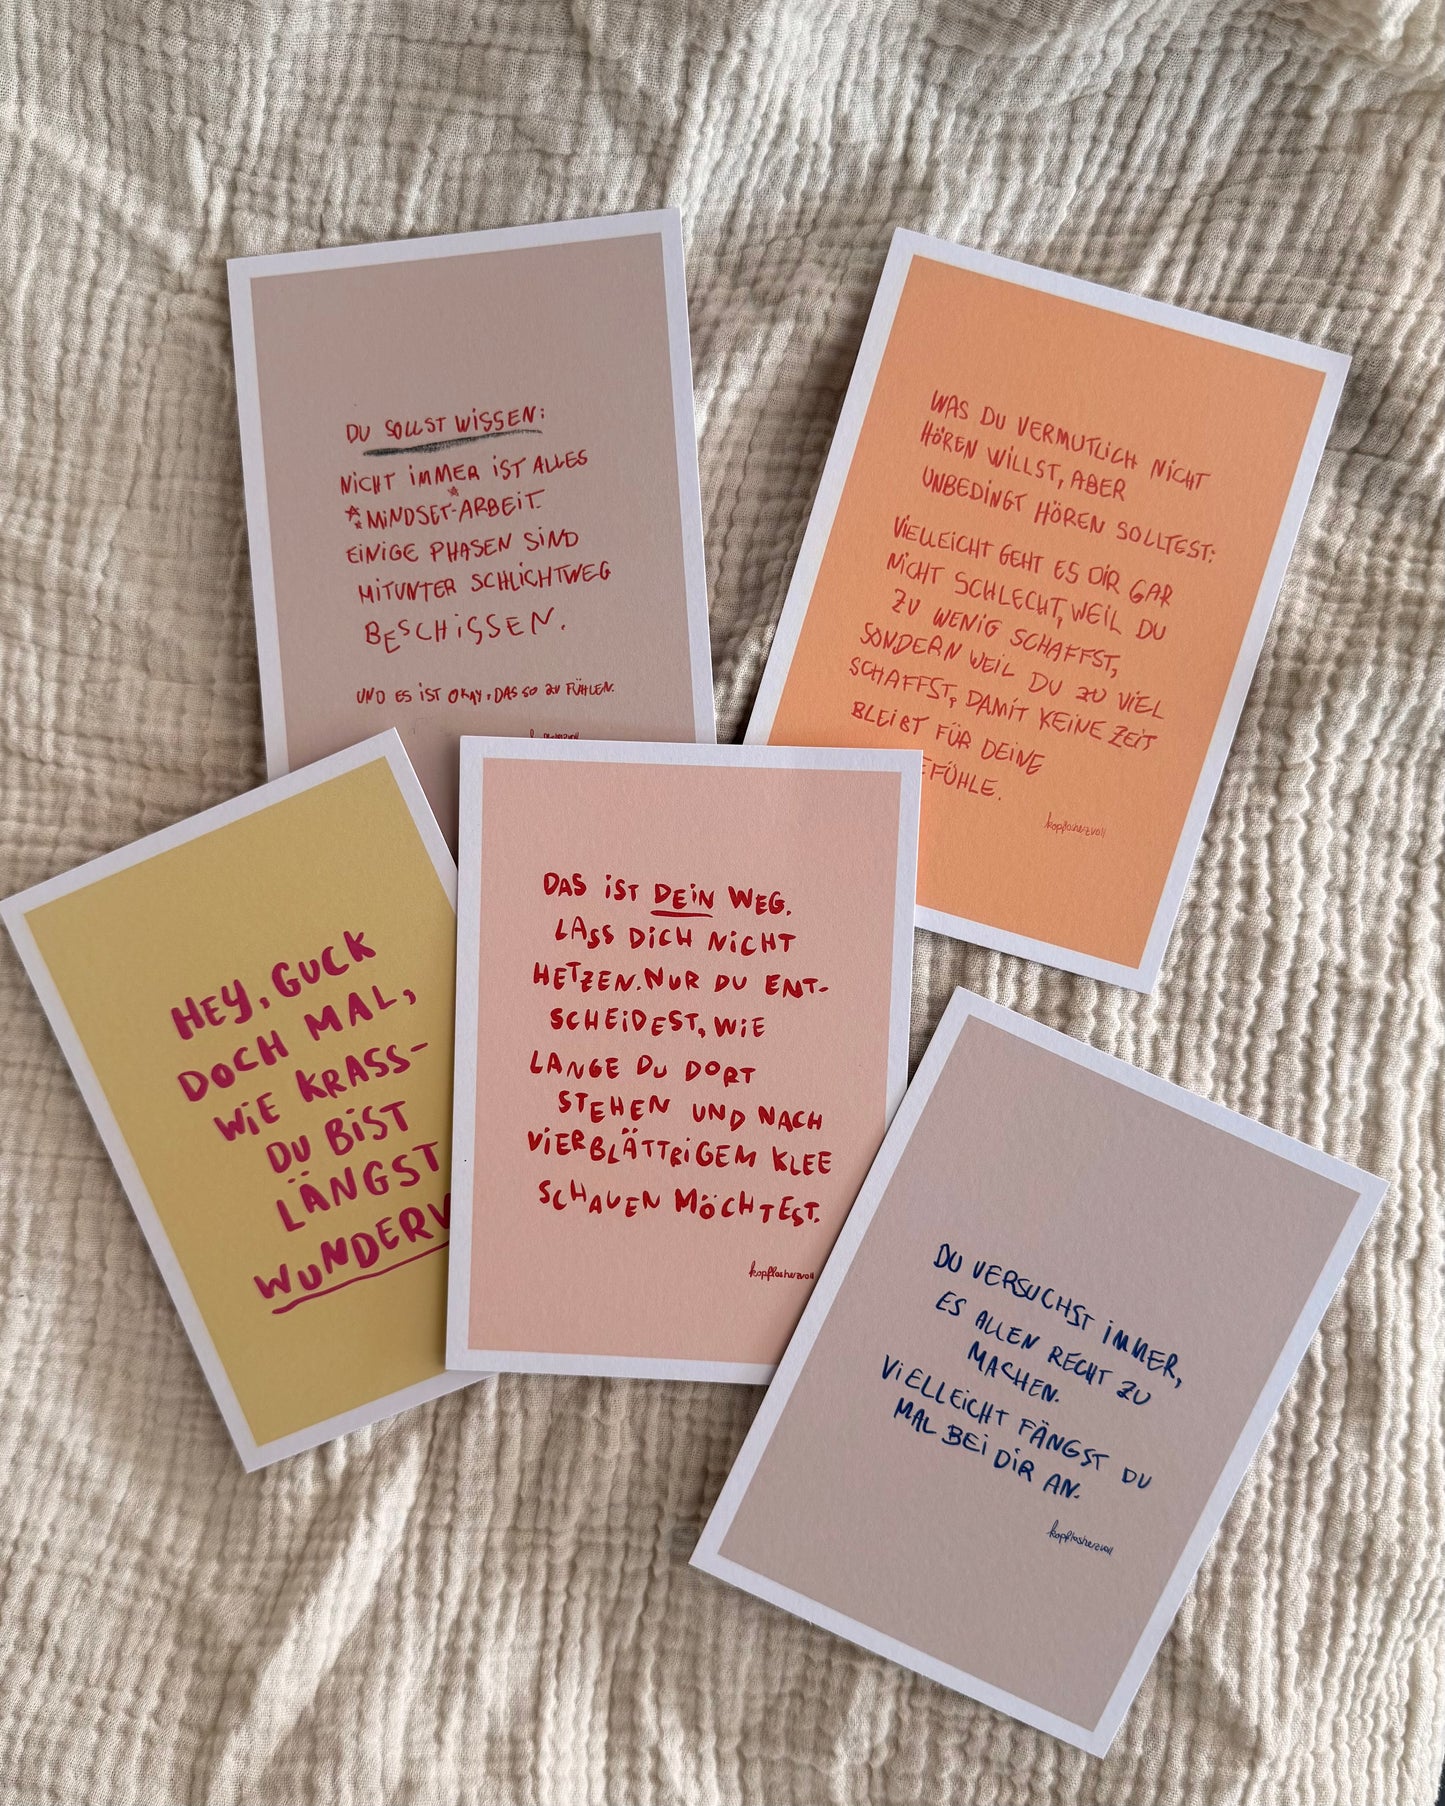 DU SOLLST WISSEN:
NICHT IMMER IST ALLES
*MINDSET*-ARBEIT.
EINIGE PHASEN SIND
MITUNTER SCHLICHTWEG
BESCHISSEN.
UND ES IST OKAY, DAS SO ZU FÜHLEN.
WAS DU VERMUTLICH NICHT
HÖREN WILLST, ABER
UNBEDINGT HÖREN SOLLTEST:
VIELLEICHT GEHT ES DIR GAR
NICHT SCHLECHT, WEIL DU
ZU WENIG SCHAFFST,
SONDERN WEIL DU ZU VIEL
SCHAFFST, DAMIT KEINE ZEIT
BLEIBT FÜR DEINE
EFÜHLE.
kopflosherzvoll
HEY, GUCK
DOCH MAL,
WIE KRASS-
DU BIST
LÄNGST
WUNDERV
DAS IST DEIN WEG.
LASS DICH NICHT
HETZEN. NUR DU ENT-
SCHEIDEST, WIE
LANGE DU DORT
STEHEN UND NACH
VIERBLÄTTRIGEM KLEE
SCHAUEN MÖCHTEST.
kopflosherzvoll
DU VERSUCHST IMMER,
ES ALLEN RECHT ZU
MACHEN.
VIELLEICHT FÄNGST DU
MAL BEI DIR AN.
kopflosherzvoll